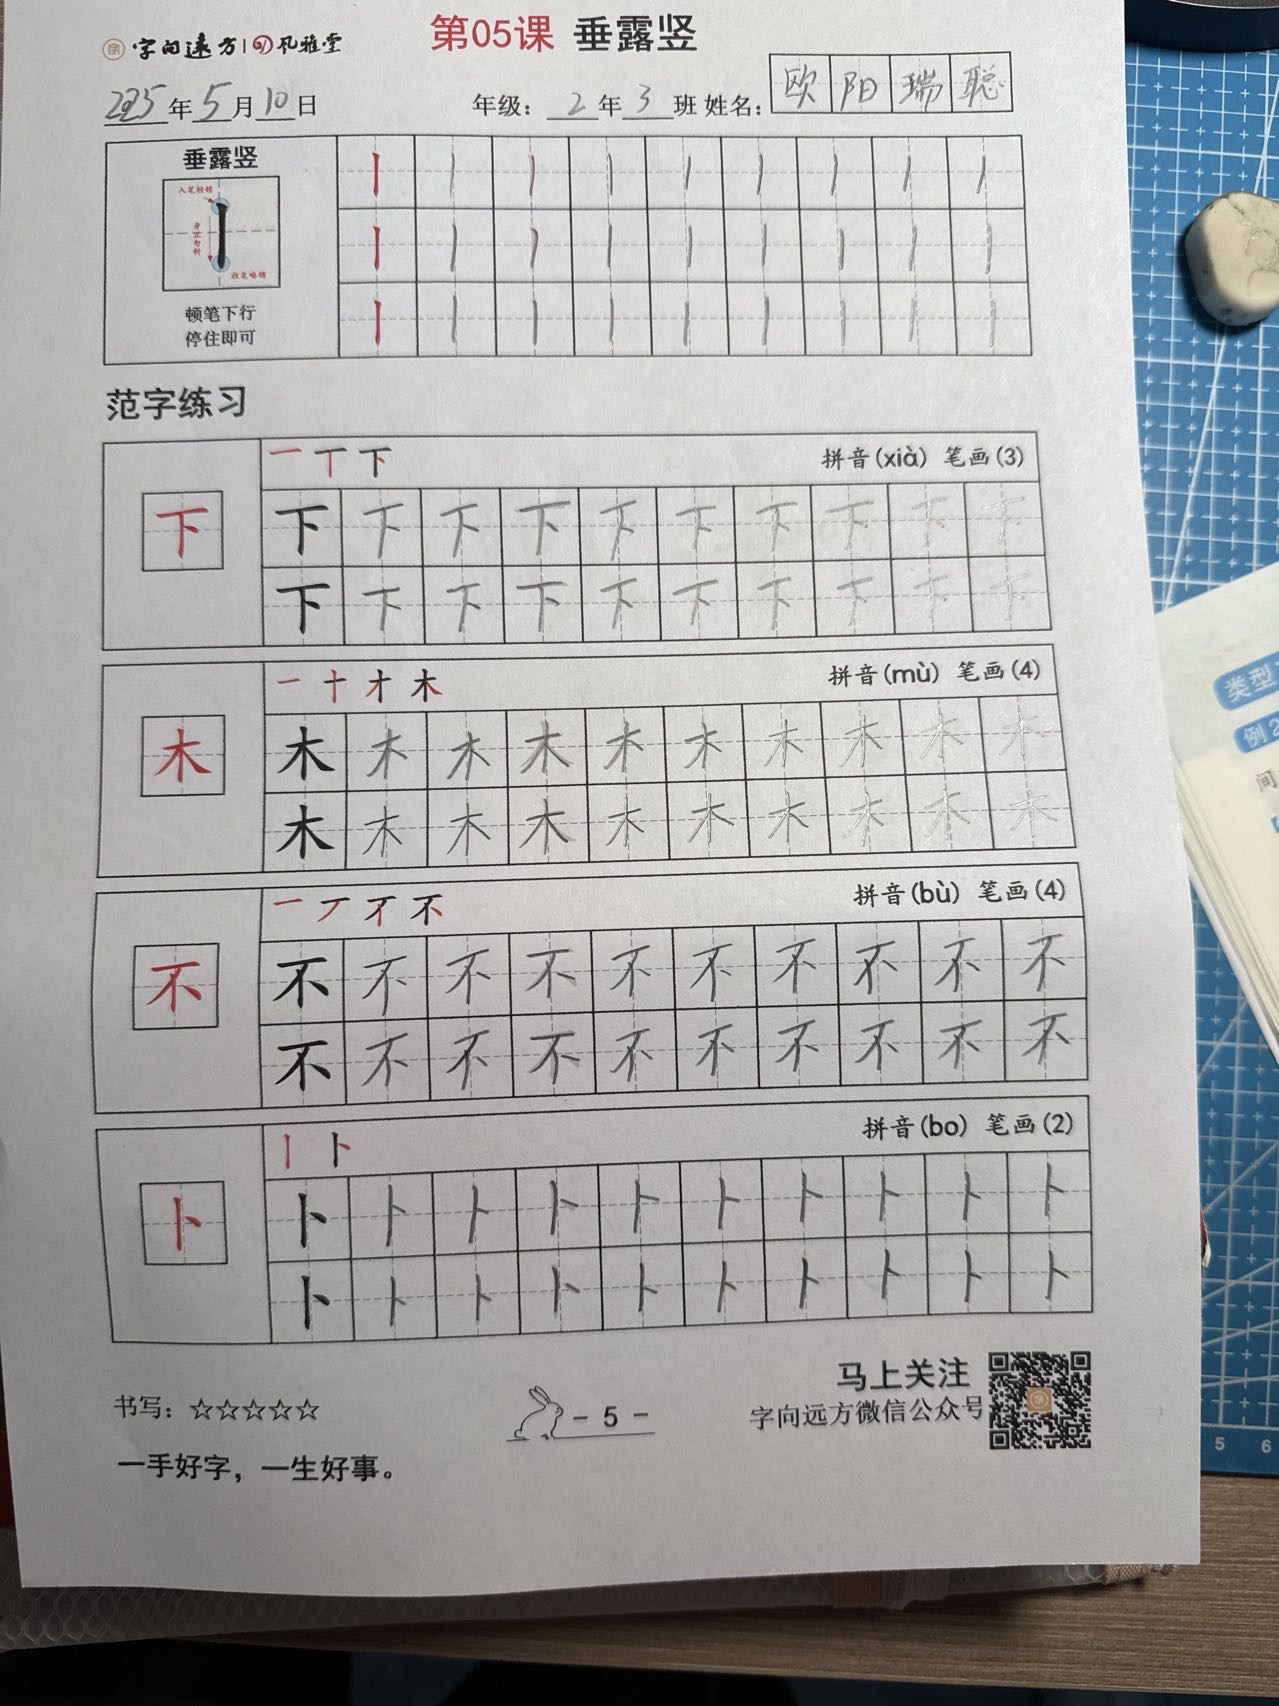 字向远方 | 风雅堂
第05课 垂露竖
2025年5月10日 年级：2年3班 姓名：欧阳瑞聪
垂露竖
入笔轻顿
身正匀行
收笔略顿
顿笔下行
停住即可
范字练习
一 丅 下 拼音(xià) 笔画(3)
下 下 下 下 下 下 下 下 下 下 下
下 下 下 下 下 下 下 下 下 下
一 十 才 木 拼音(mù) 笔画(4)
木 木 木 木 木 木 木 木 木 木 木
木 木 木 木 木 木 木 木 木 木
一 丆 不 拼音(bù) 笔画(4)
不 不 不 不 不 不 不 不 不 不 不
不 不 不 不 不 不 不 不 不 不
丨 卜 拼音(bo) 笔画(2)
卜 卜 卜 卜 卜 卜 卜 卜 卜 卜 卜
卜 卜 卜 卜 卜 卜 卜 卜 卜 卜
书写：☆☆☆☆☆
- 5 -
马上关注
字向远方微信公众号
一手好字，一生好事。
类型
例2
间
5 6